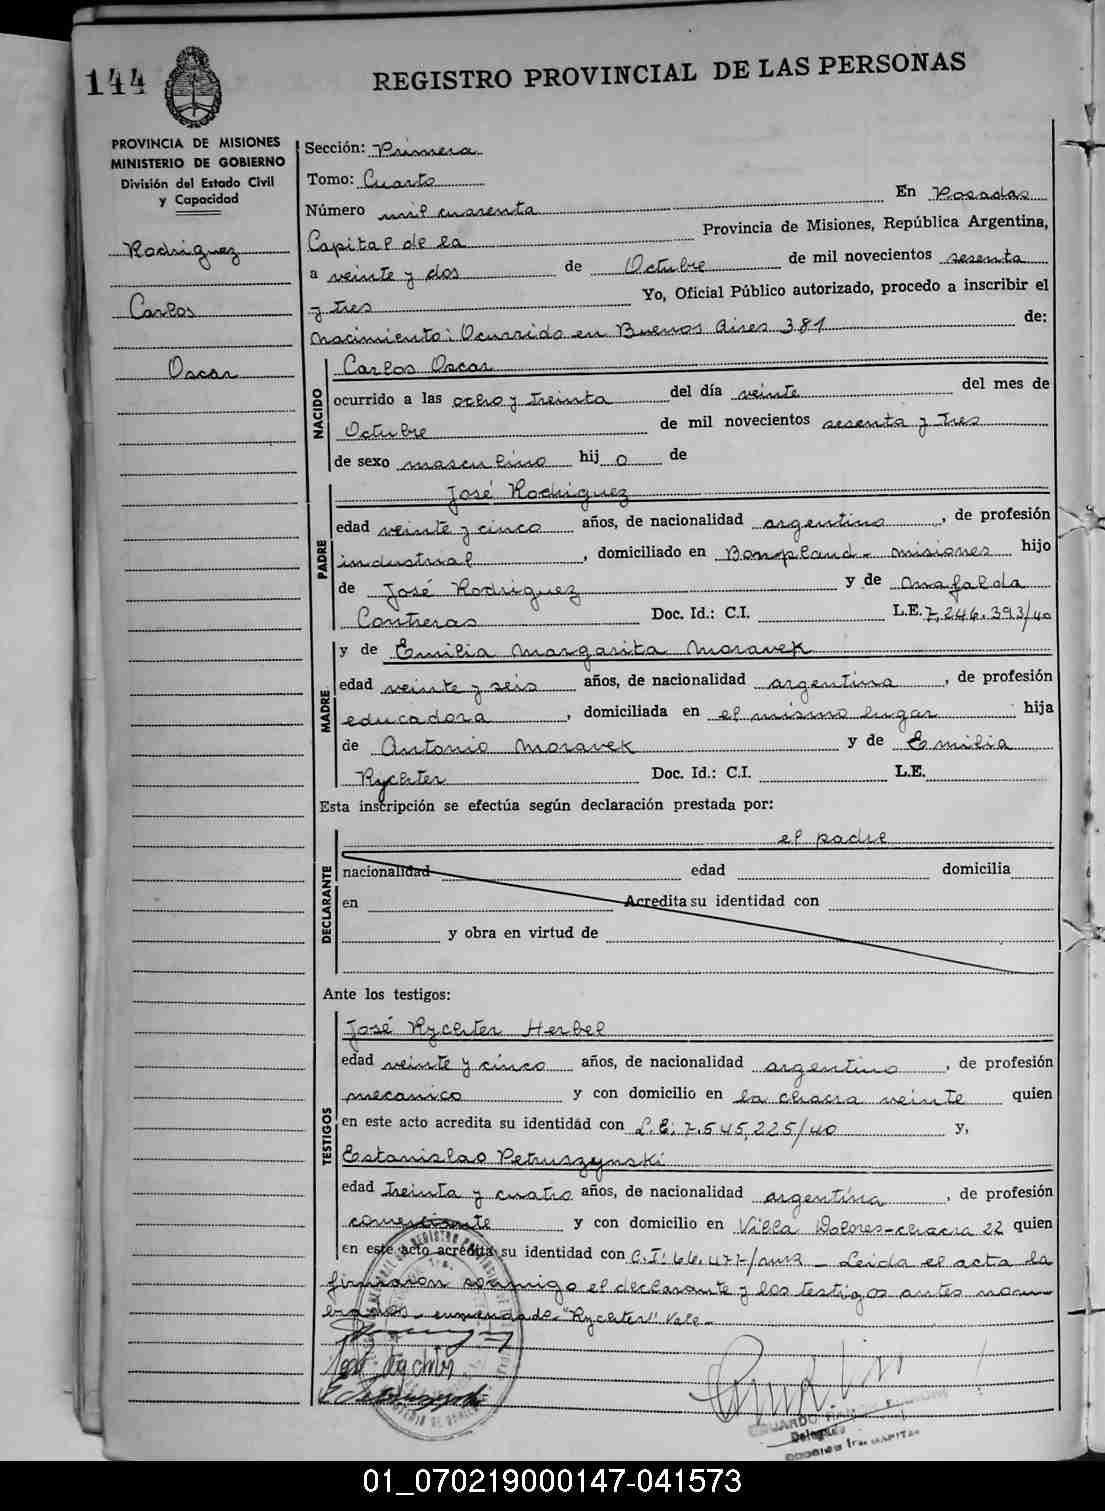 144
REGISTRO PROVINCIAL DE LAS PERSONAS
PROVINCIA DE MISIONES
MINISTERIO DE GOBIERNO
División del Estado Civil
y Capacidad
Rodriguez
Carlos
Oscar
Sección: Primera
Tomo: Cuarto
Número mil cuarenta En Posadas
Capital de la Provincia de Misiones, República Argentina,
a veinte y dos de Octubre de mil novecientos sesenta
y tres Yo, Oficial Público autorizado, procedo a inscribir el
nacimiento: Ocurrido en Buenos Aires 381 de:
NACIDO
Carlos Oscar
ocurrido a las ocho y treinta del día veinte del mes de
Octubre de mil novecientos sesenta y tres
de sexo masculino hij o de
PADRE
José Rodriguez
edad veinte y cinco años, de nacionalidad argentino, de profesión
industrial, domiciliado en Bonpland - misiones hijo
de José Rodriguez y de Mafalda
Contreras Doc. Id.: C.I. L.E. 7.246.393/40
MADRE
y de Emilia Margarita Moravek
edad veinte y seis años, de nacionalidad argentina, de profesión
educadora, domiciliada en el mismo lugar hija
de Antonio Moravek y de Emilia
Rychter Doc. Id.: C.I. L.E.
Esta inscripción se efectúa según declaración prestada por:
DECLARANTE
el padre
nacionalidad edad domicilia
en Acredita su identidad con
y obra en virtud de
Ante los testigos:
TESTIGOS
José Rychter Herbel
edad veinte y cinco años, de nacionalidad argentino, de profesión
mecanico y con domicilio en la chacra veinte quien
en este acto acredita su identidad con L.E: 7.545.225/40 y,
Estanislao Petruszynski
edad treinta y cuatro años, de nacionalidad argentina, de profesión
comerciante y con domicilio en Villa Dolores-chacra 22 quien
en este acto acredita su identidad con C.I: 66.477/mns - Leida el acta la
firmaron conmigo el declarante y los testigos antes nom-
brados - enmendado - "Rychter" Vale -
EDUARDO
Delegado
01_070219000147-041573